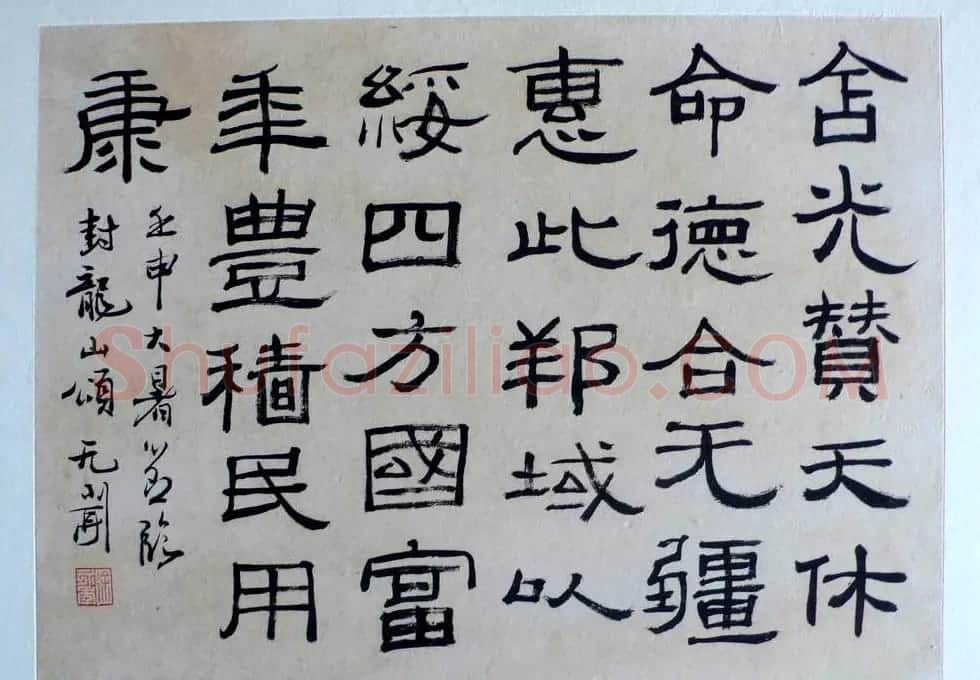 含光贊天休
命德合无疆
惠此邦域以
綏四方國富
年豊穡民用
康
壬申大暑臨
封龍山頌
Shufaziliao.COM